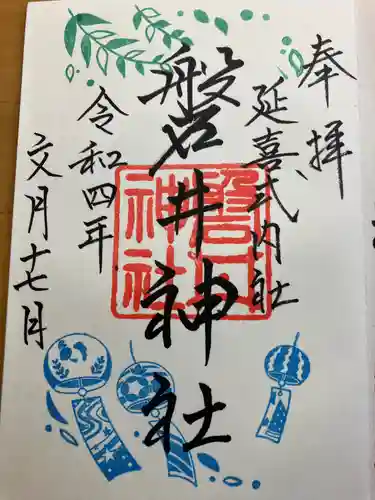 奉拝
延喜式内社
磐井神社
磐井神社
令和四年
文月十七日